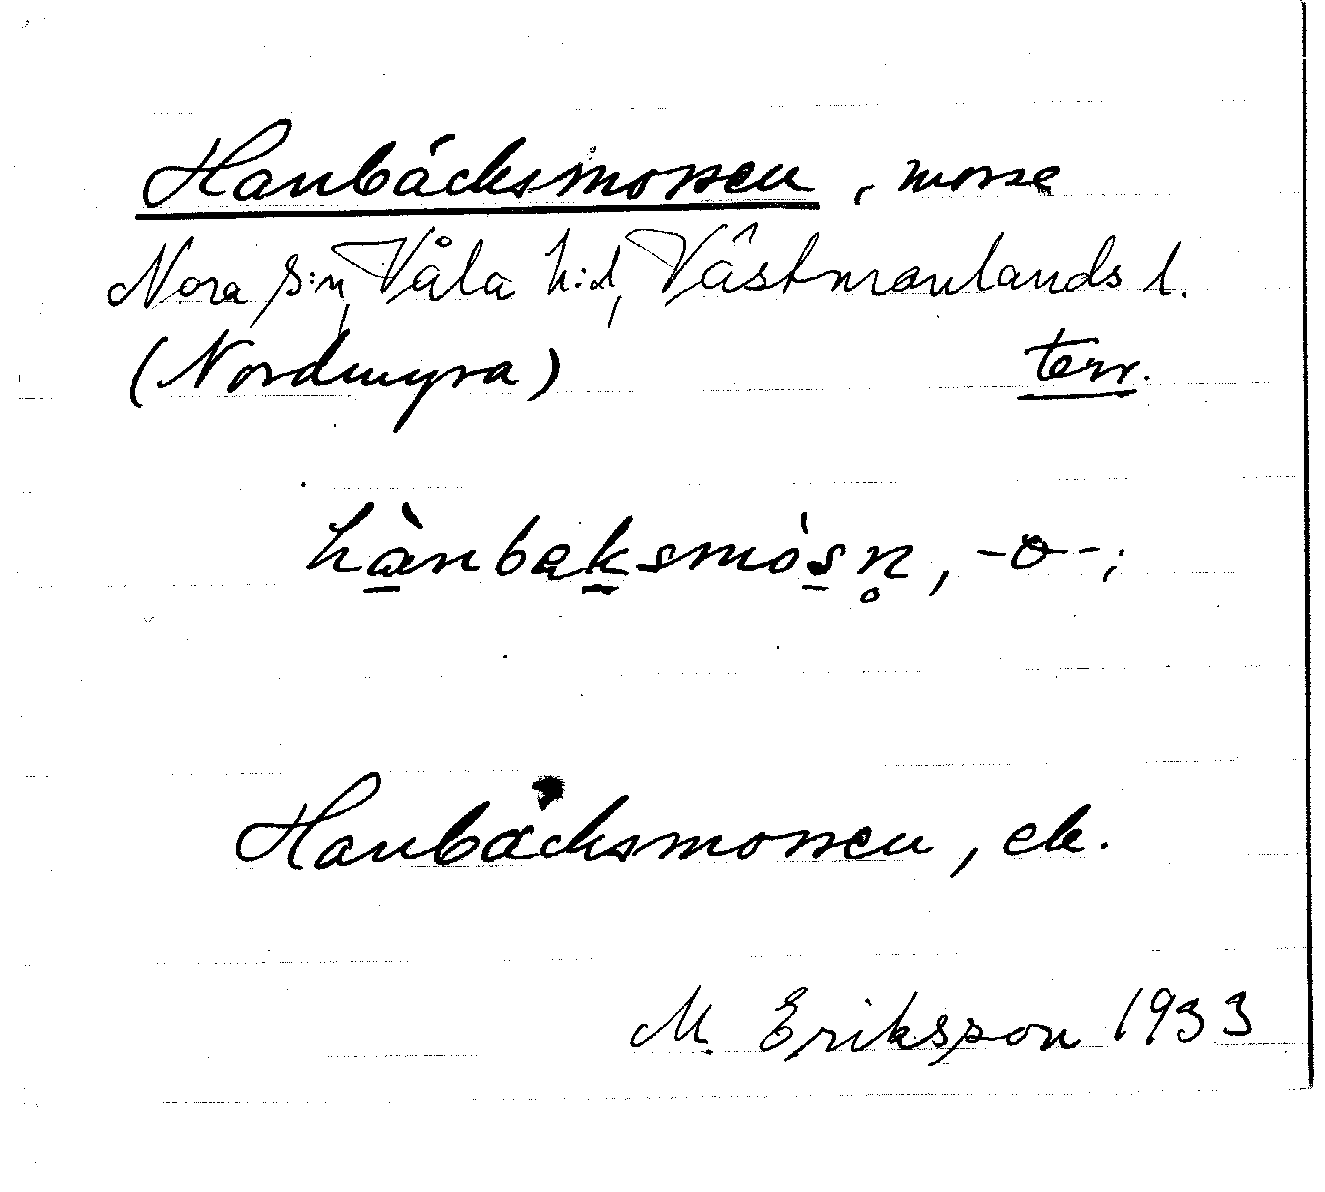 Hanbäcksmossen, mosse
Nora s:n, Våla h:d, Västmanlands l.
(Nordmyra) terr.
hànbaksmòsn̥, -o-;
Hanbäcksmossen, ek.
M. Eriksson 1933